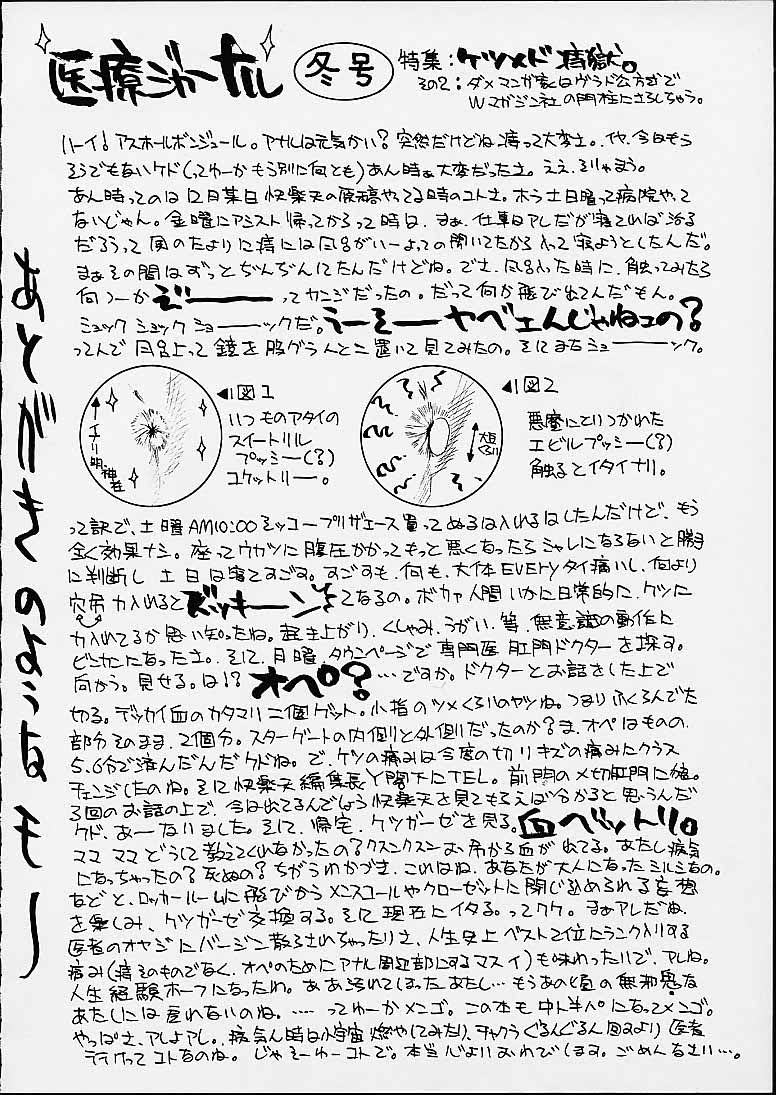 医療ジャーナル
冬号
特集:ケツメド痔獄。
その2:ダメマンガ家はヴラド公方式で
Wマガジン社の門柱にさらしちゃう。
あとがきのようなモノ
ハーイ!アスホールボンジュール。アナルは元気かい?突然だけどね痔って大変さ。イヤ、今日もう
そうでもないケド(ってゆーかもう別に何とも)あん時ぁ大変だったさ。ええ、そりゃもう。
あん時ってのは12月某日快楽天の原稿やってる時のコトさ。ホラ土日曜って病院やって
ないじゃん。金曜にアシスト帰ってからって時は、まぁ、仕事はアレだが寝てれば治る
だろうって風のたよりに痔には風呂がいーよっての聞いてたから入って寝ようとしたんだ。
まぁその間はずっとぢんぢんしてたんだけどね。でさ、風呂入った時に、触ってみたら
何つーかぞーーってカンジだったの。だって何か飛び出てんだもん。
ショック ショック ショーーックだ。うーそーヤベェんじゃねェの?
ってんで風呂上って鏡を股グラんとこ置いて見てみたの。そしてまたショーーック。
◀図1
いつものアタイの
スイートリル
プッシー(?)
ユケットリー。
イナリ明神在
◀図2
悪魔にとりつかれた
エビルプッシー(?)
触るとイタイナリ。
大豆ぐらい
って訳で、土曜AM10:00ヒッコープリザエース買ってぬるは入れるはしたんだけど、もう
全く効果ナシ。座ってウカツに腹圧かかってもっと悪くなったらシャレにならないと勝手
に判断し土日は寝てすごす。すごすも、何も、大体EVERYタイ痛いし、何より
穴吊力入れるとズッキーンってなるの。ボカァ人間いかに日常的に、ケツに
力入れてるか思い知ったね。起き上がり、くしゃみ、うがい、等、無意識の動作に
ビンカンになったさ。そして、月曜、タウンページで専門医肛門ドクターを探す。
向かう。見せる。は!?オペ?…ですか。ドクターとお話をした上で
切る。デッカイ血のカタマリ二個ゲット。小指のツメぐらいのヤツね。つまりふくらんでた
部分そのまま、2個分。スターゲートの内側と外側だったのか?ま、オペはものの、
5、6分で済んだんだケドね。で、ケツの痛みは今度の切りキズの痛みにクラス
チェンジしたのね。そして快楽天編集長Y閣下にTEL。前門の〆切肛門に痔。
3回のお話の上で、今は出てるんでしょう快楽天を見てもらえば分かると思うんだ
ケド、あーなりました。そして、帰宅、ケツガーゼを見る。血ベットリ。
ママ ママ どうして教えてくれなかったの?クスンクスンお吊から血が出てる。あたし病気
になっちゃったの?死ぬの?ちがうわかづき、これはね、あなたが大人になったシルシなの。
などと、ロッカールームに飛びかうメンスコールやクローゼットに閉じ込められる妄想
を楽しみ、ケツガーゼ交換する。そして現在にイタる。ってワケ。まぁアレだね、
医者のオヤジにバージン散らされちゃったりさ、人生史上ベスト2位にランク入りする
痛み(痔そのものでなく、オペのためにアナル周辺部にするマスイ)も味わったりで、アレね。
人生経験ホーフになったわ。ああ汚れてしまったあたし…もうあの頃の無邪気な
あたしには戻れないのね。……ってゆーかメンゴ。この本も中ト半パになってメンゴ。
やっぱさ、アレよアレ。病気ん時は小宇宙燃やしてみたり、チャクラぐるんぐるん回すより医者
行けってコトなのね。じゃそーゆーコトで。本当心よりおわびします。ごめんなさい…。